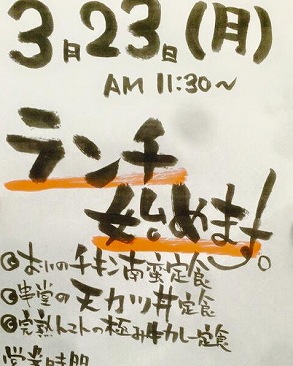 3月23日(月)
AM 11:30~
ランチ
始めます。
◎おいのチキン南蛮定食
◎串堂の天カツ丼定食
◎完熟トマトの極み牛カレー定食
営業時間